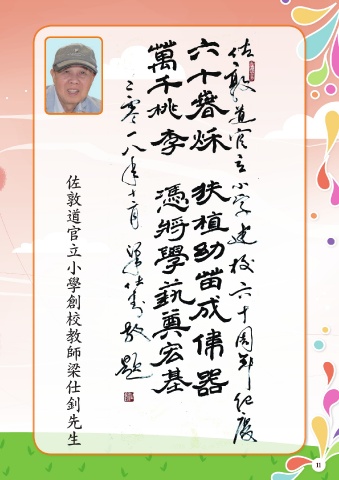 佐敦道官立小学建校六十周年紀慶
六十春秋 扶植幼苗成偉器
萬千桃李 憑將學藝奠宏基
二零一八年十月 梁仕釗 敬題
佐敦道官立小學創校教師梁仕釗先生
11